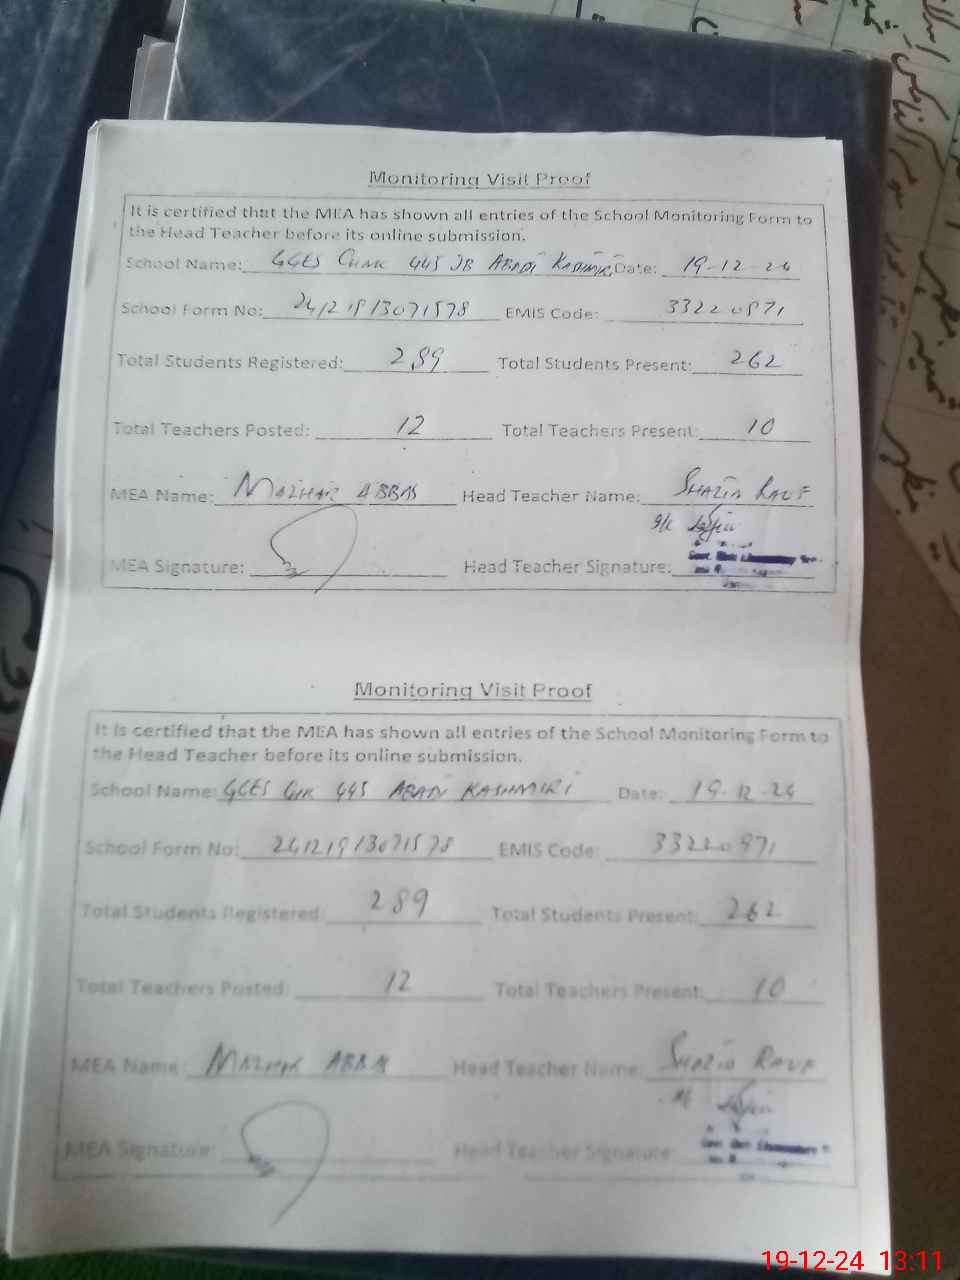 Monitoring Visit Proof
It is certified that the MEA has shown all entries of the School Monitoring Form to
the Head Teacher before its online submission.
School Name: GGES CHAK 445 JB ABADI KASHMIRI Date: 19-12-24
School Form No: 24121913071578 EMIS Code: 33220871
Total Students Registered: 289 Total Students Present: 262
Total Teachers Posted: 12 Total Teachers Present: 10
MEA Name: MAZHAR ABBAS Head Teacher Name: SHAZIA RAUF
MEA Signature: Head Teacher Signature:
Monitoring Visit Proof
It is certified that the MEA has shown all entries of the School Monitoring Form to
the Head Teacher before its online submission.
School Name: GGES CHK 445 ABADI KASHMIRI Date: 19-12-24
School Form No: 24121913071578 EMIS Code: 33220871
Total Students Registered: 289 Total Students Present: 262
Total Teachers Posted: 12 Total Teachers Present: 10
MEA Name: MAZHAR ABBAS Head Teacher Name: SHAZIA RAUF
MEA Signature: Head Teacher Signature:
19-12-24 13:11